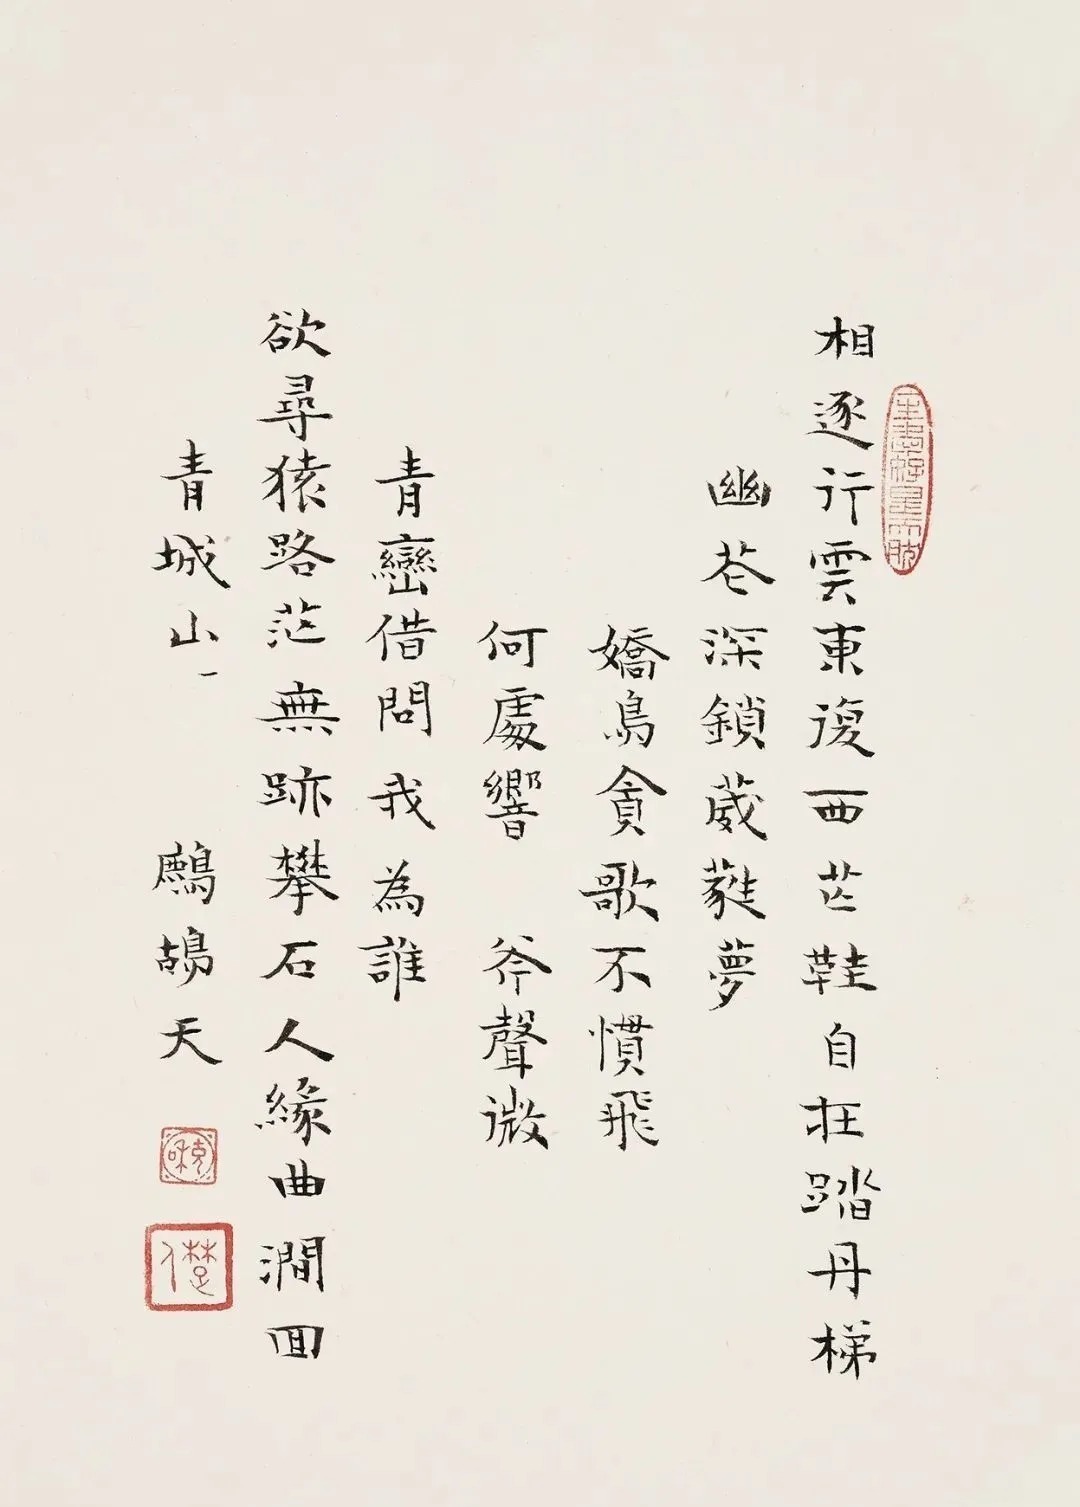 相逐行雲東復西芒鞋自在踏丹梯
幽芲深鎖葳蕤夢
嬌鳥貪歌不慣飛
何處響 斧聲微
青巒借問我為誰
欲尋猿路茫無跡攀石人緣曲澗回
青城山一 鷓鴣天